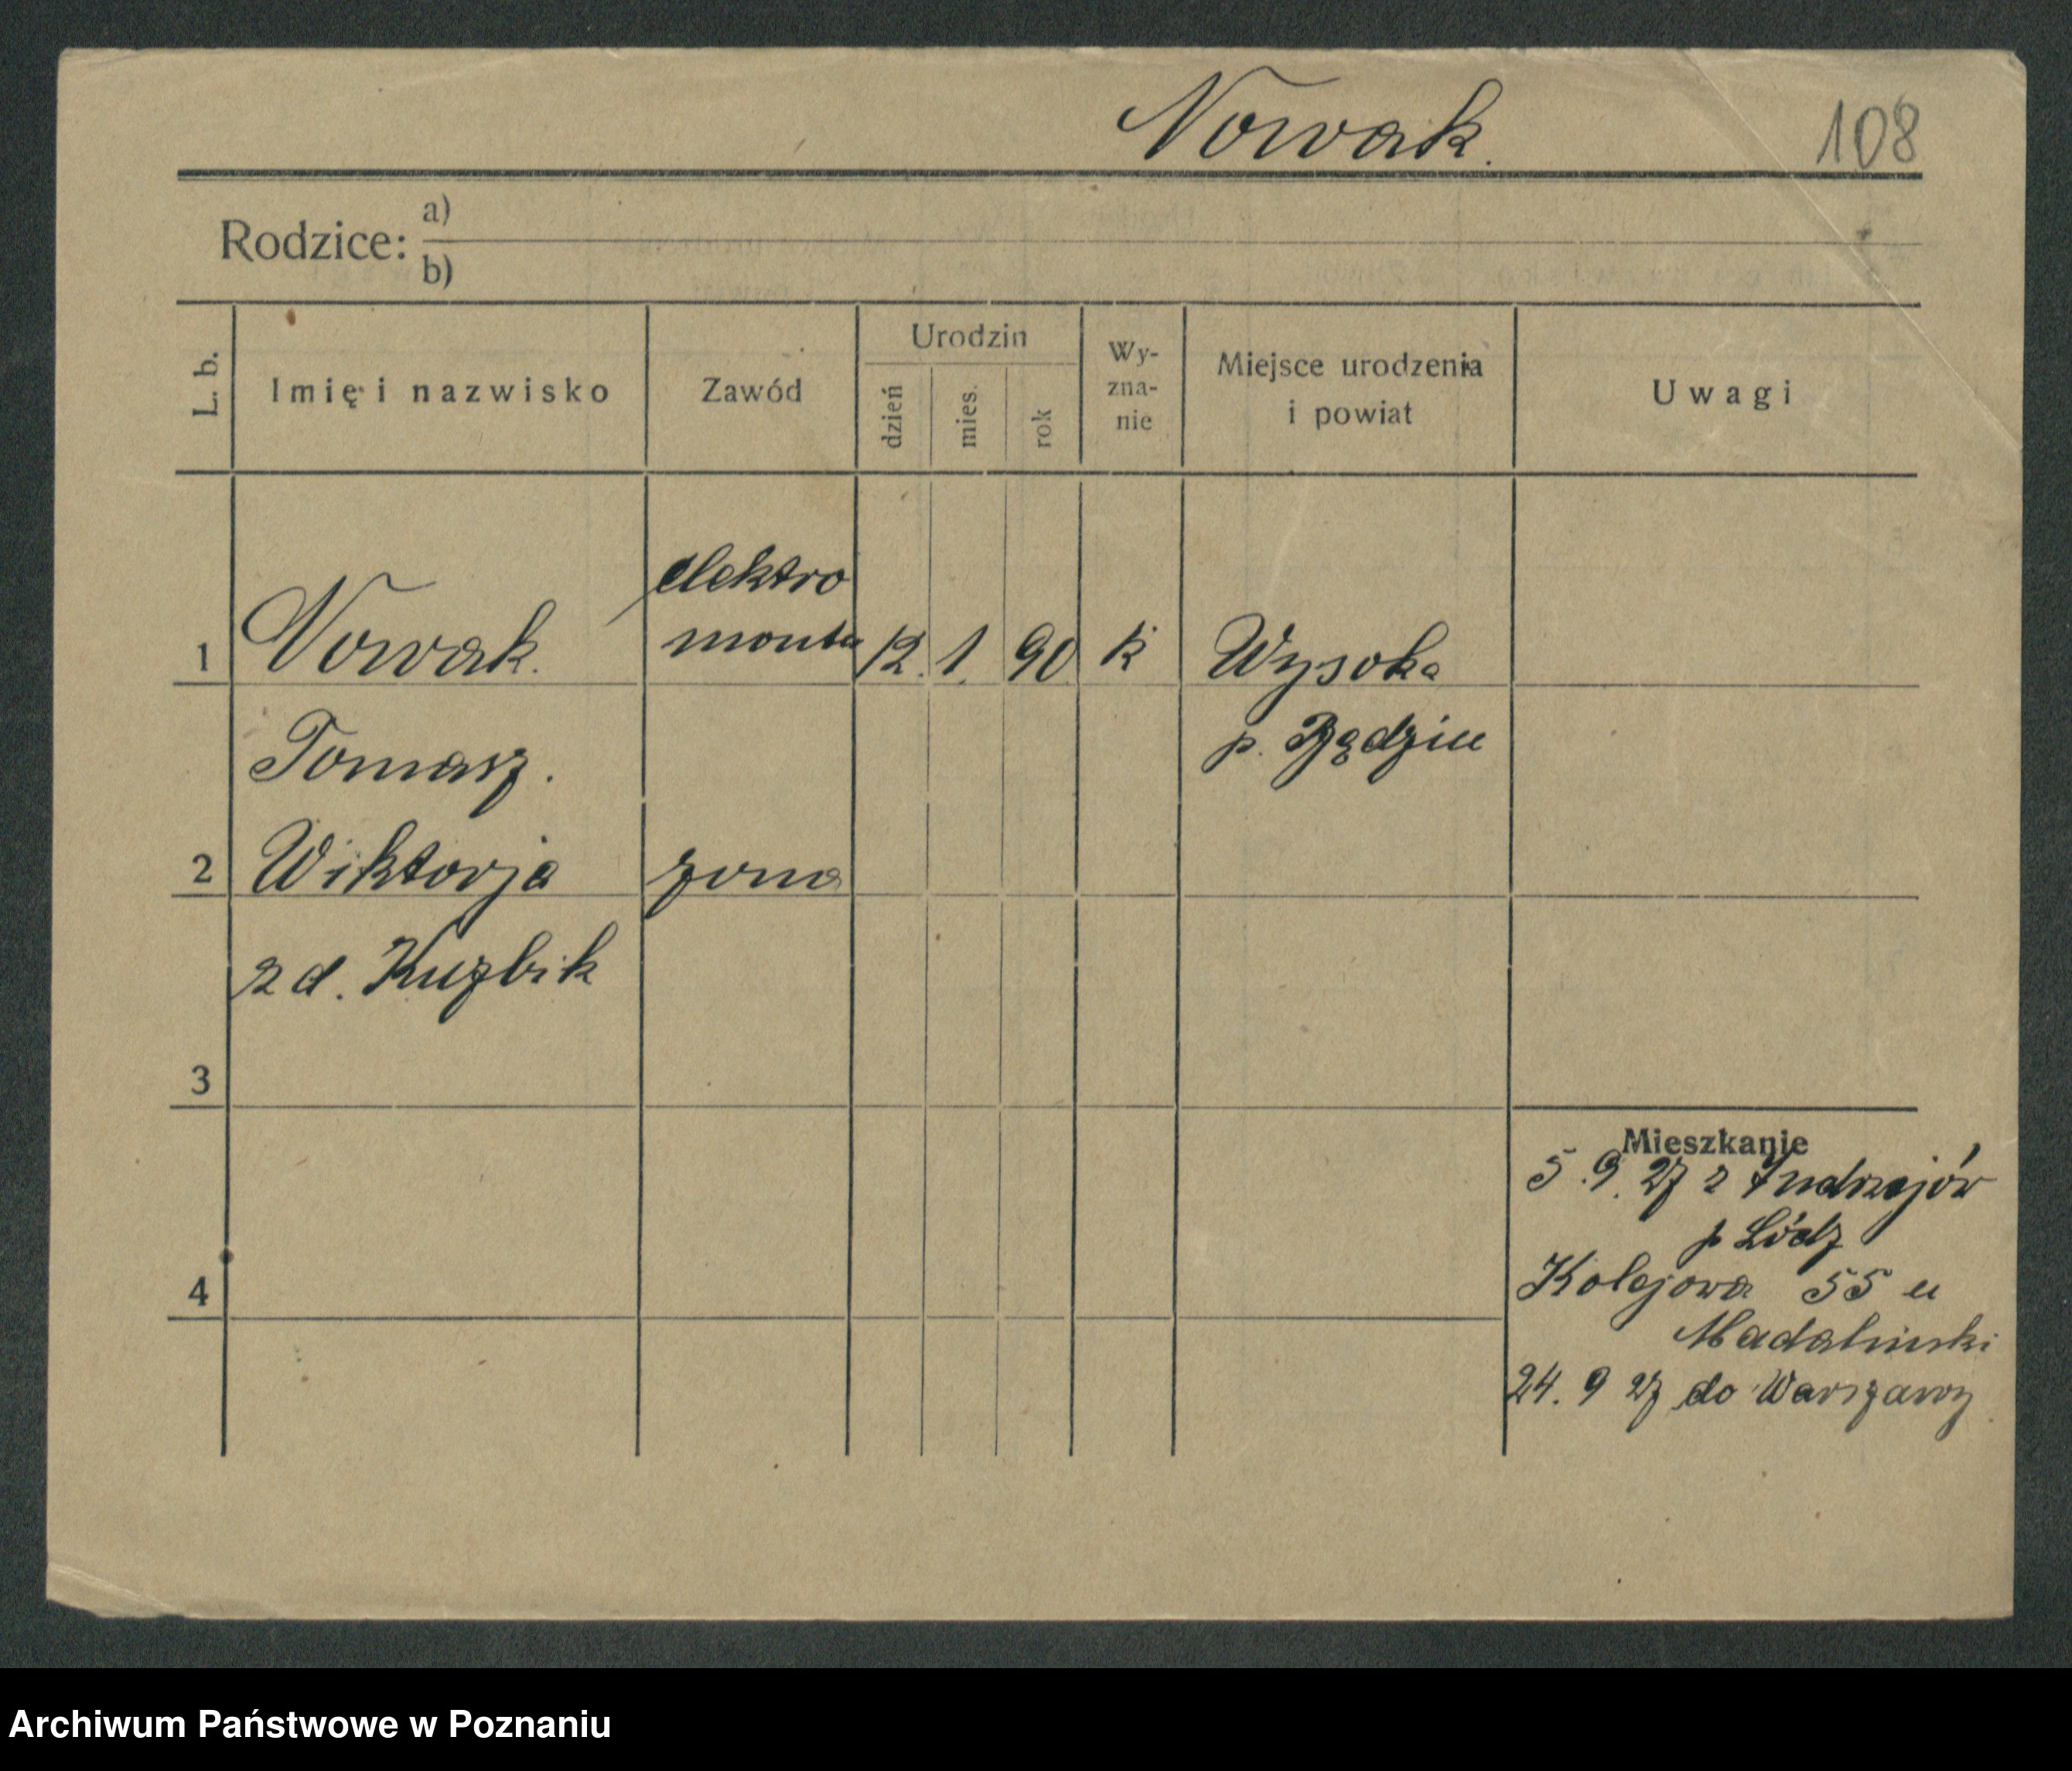 Nowak.
108
Rodzice:
a)
b)
L. b.
Imię i nazwisko
Zawód
Urodzin
dzień
mies.
rok
Wy-
zna-
nie
Miejsce urodzenia
i powiat
Uwagi
elektro
1 Nowak. monter 12. 1. 90 k Wysoka
Tomasz. p. Będzin
2 Wiktorja żona
z d. Kuzbik
3
Mieszkanie
5.9.27 z Andrzejów
p Łódź
4
Kolejowa 55 u
Madalinski
24. 9 27 do Warszawy
Archiwum Państwowe w Poznaniu